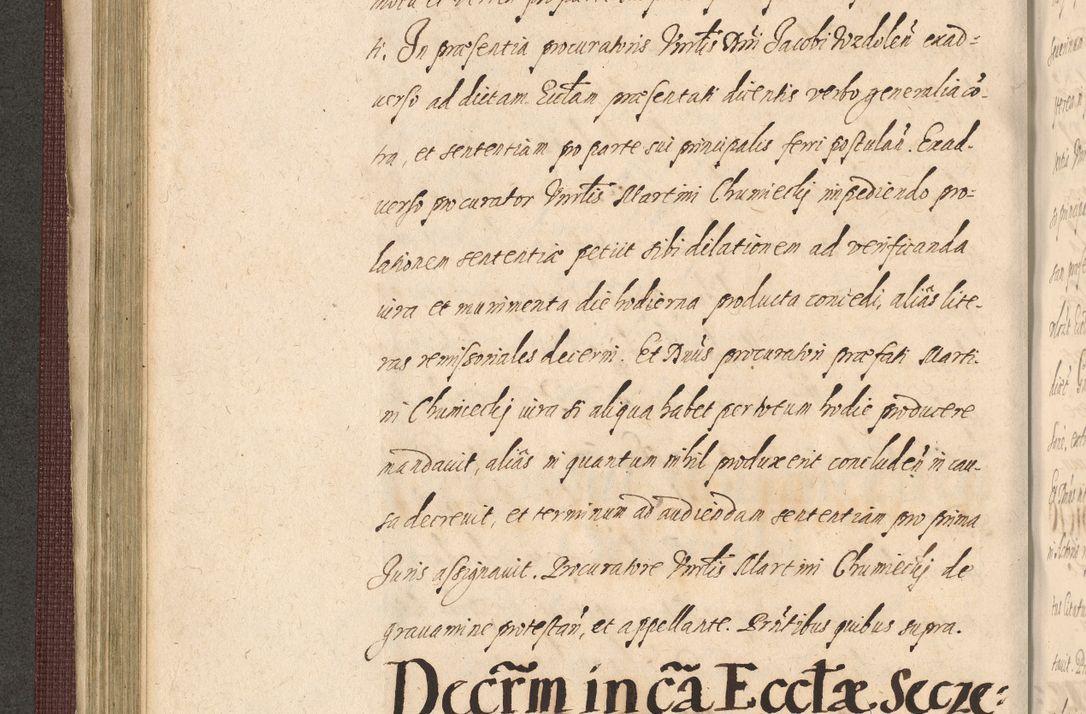 ti. In præsentia procuratoris Vnrlis Dni Jacobi Wzdolen̄ exad=
uerso ad dictam Ecclam præsentati dicentis verbo generalia cō-
tra, et sententiam pro parte sui principalis ferri postulan̄. Exad-
uerso procurator Vnrlis Martini Chumiecky impediendo pro=
lationem sententiæ petiit sibi dilationem ad verificanda
iura et munimenta die hodierna producta concedi, aliās lite-
ras remissoriales decerni. Et Dnūs procuratori præfati Marti-
ni Chumiecky iura si aliqua habet per totum hodie producere
mandauit, aliās in quantum nihil produxerit concluden̄ in cau-
sa decreuit, et terminum ad audiendam sententiam pro prima
Juris assignauit. Procuratore Vnrlis Martini Chumiecky de
grauamine protestan̄, et appellante. Prn̄tibus quibus supra.
Decr̄m in cā Ecctæ Secze=